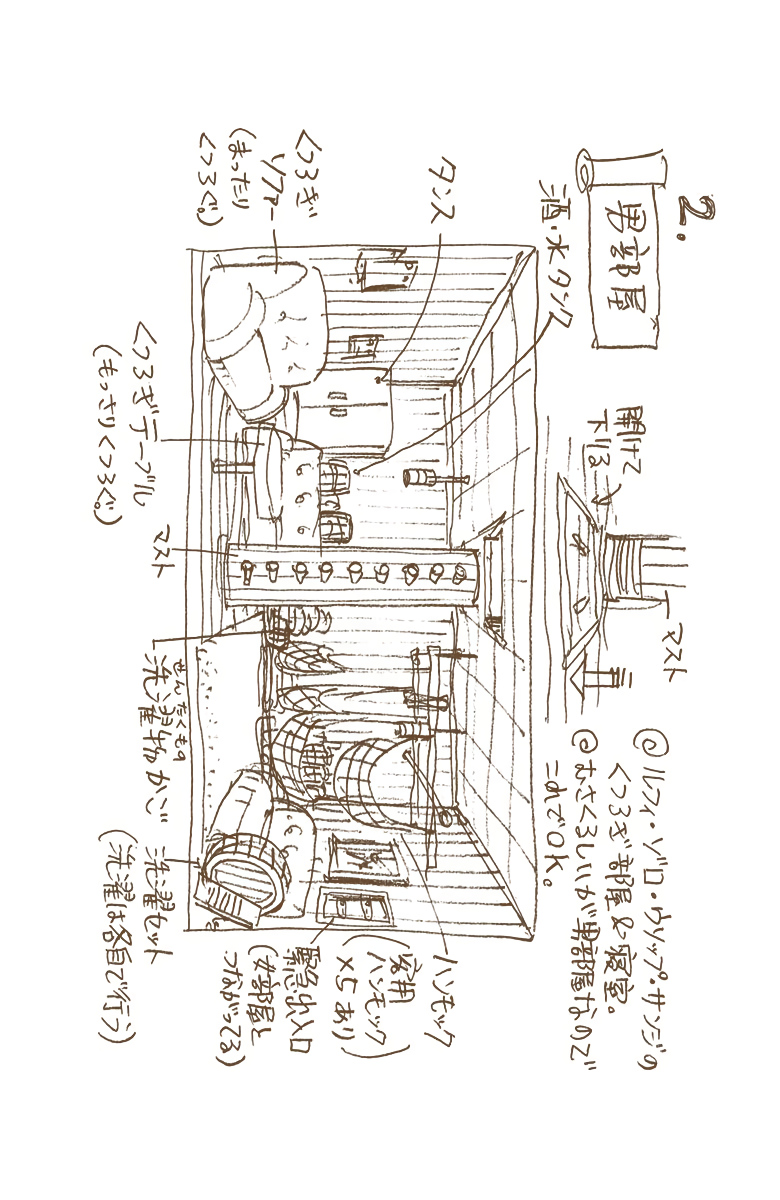 2.
男部屋
開けて
下りる→
マスト
@ルフィ・ゾロ・ウソップ・サンジの
くつろぎ部屋&寝室。
@むさくるしいが男部屋なので
これでOK。
酒・水タンク
タンス
くつろぎ
ソファー
(まったり
くつろぐ。)
くつろぎテーブル
(もっさりくつろぐ。)
マスト
せんたくもの
洗濯物かご
洗濯セット
(洗濯は各自で行う)
ハンモック
(客用
ハンモック
×5あり)
緊急出入口
(女部屋と
つながってる)